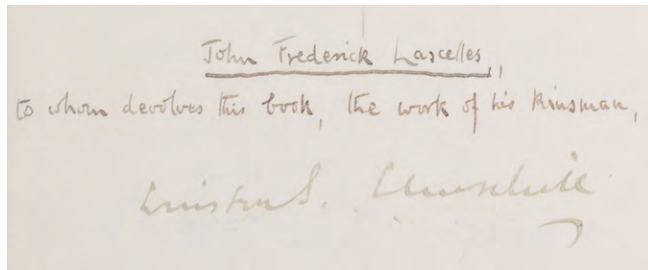 John Frederick Lascelles,
to whom devolves this book, the work of his kinsman,
Winston S. Churchill